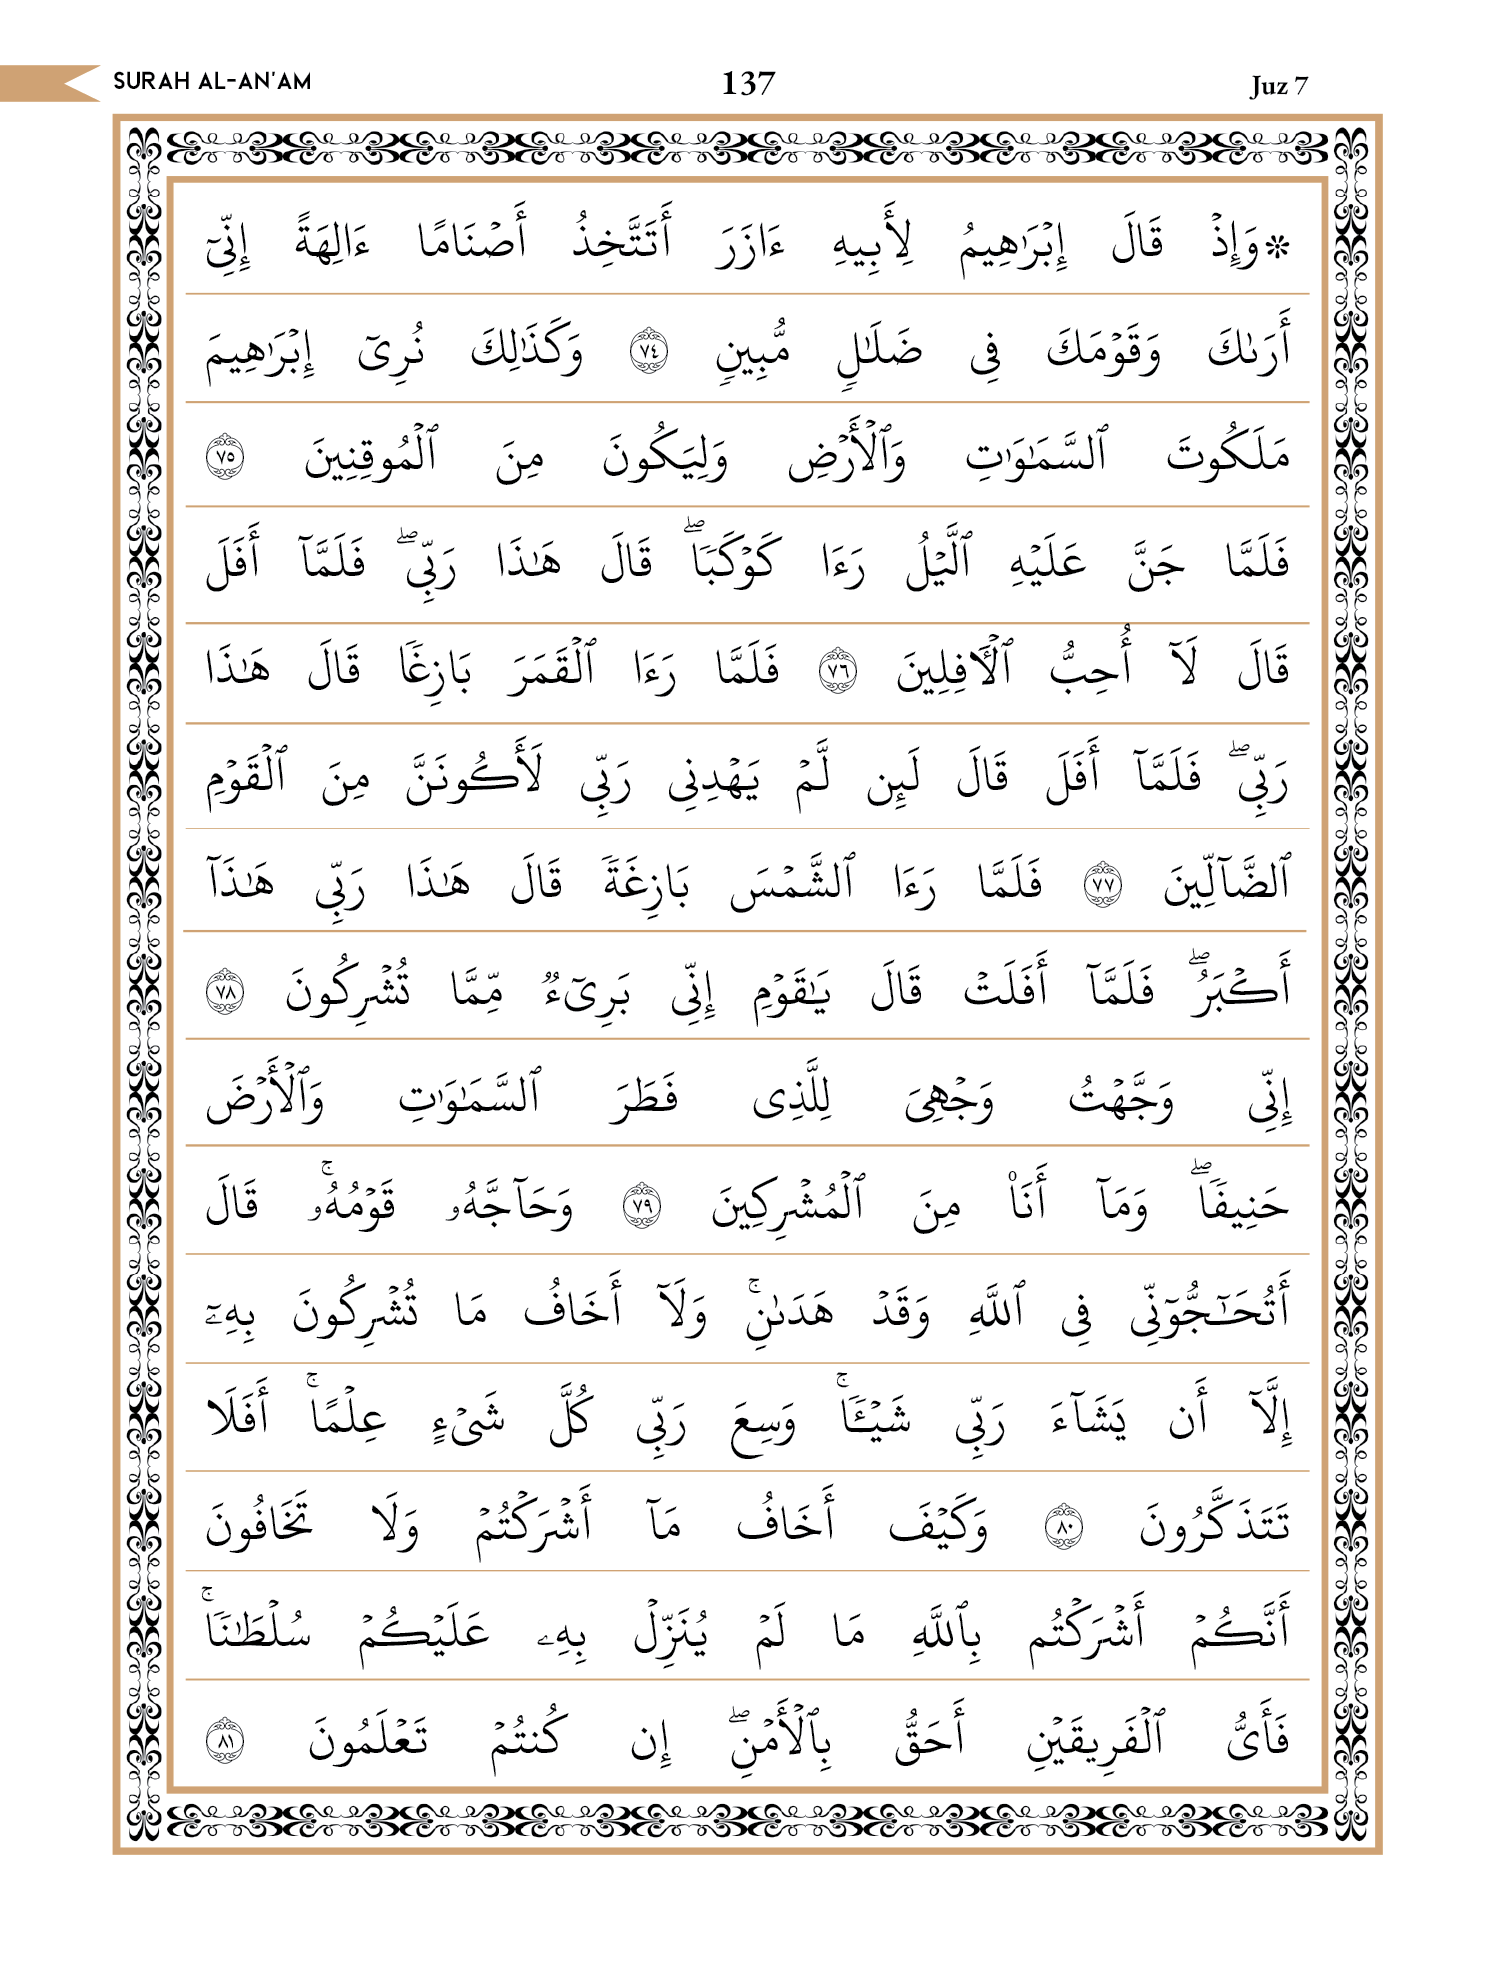 SURAH AL-AN'AM 137 Juz 7
۞ وَإِذۡ قَالَ إِبۡرَٰهِيمُ لِأَبِيهِ ءَازَرَ أَتَتَّخِذُ أَصۡنَامًا ءَالِهَةً إِنِّيٓ
أَرَىٰكَ وَقَوۡمَكَ فِي ضَلَٰلٖ مُّبِينٖ ٧٤ وَكَذَٰلِكَ نُرِيٓ إِبۡرَٰهِيمَ
مَلَكُوتَ ٱلسَّمَٰوَٰتِ وَٱلۡأَرۡضِ وَلِيَكُونَ مِنَ ٱلۡمُوقِنِينَ ٧٥
فَلَمَّا جَنَّ عَلَيۡهِ ٱلَّيۡلُ رَءَا كَوۡكَبٗاۖ قَالَ هَٰذَا رَبِّيۖ فَلَمَّآ أَفَلَ
قَالَ لَآ أُحِبُّ ٱلۡأٓفِلِينَ ٧٦ فَلَمَّا رَءَا ٱلۡقَمَرَ بَازِغٗا قَالَ هَٰذَا
رَبِّيۖ فَلَمَّآ أَفَلَ قَالَ لَئِن لَّمۡ يَهۡدِنِي رَبِّي لَأَكُونَنَّ مِنَ ٱلۡقَوۡمِ
ٱلضَّآلِّينَ ٧٧ فَلَمَّا رَءَا ٱلشَّمۡسَ بَازِغَةٗ قَالَ هَٰذَا رَبِّي هَٰذَآ
أَكۡبَرُۖ فَلَمَّآ أَفَلَتۡ قَالَ يَٰقَوۡمِ إِنِّي بَرِيٓءٞ مِّمَّا تُشۡرِكُونَ ٧٨
إِنِّي وَجَّهۡتُ وَجۡهِيَ لِلَّذِي فَطَرَ ٱلسَّمَٰوَٰتِ وَٱلۡأَرۡضَ
حَنِيفٗاۖ وَمَآ أَنَا۠ مِنَ ٱلۡمُشۡرِكِينَ ٧٩ وَحَآجَّهُۥ قَوۡمُهُۥۚ قَالَ
أَتُحَٰٓجُّوٓنِّي فِي ٱللَّهِ وَقَدۡ هَدَىٰنِۚ وَلَآ أَخَافُ مَا تُشۡرِكُونَ بِهِۦٓ
إِلَّآ أَن يَشَآءَ رَبِّي شَيۡـٔٗاۚ وَسِعَ رَبِّي كُلَّ شَيۡءٍ عِلۡمًاۚ أَفَلَا
تَتَذَكَّرُونَ ٨٠ وَكَيۡفَ أَخَافُ مَآ أَشۡرَكۡتُمۡ وَلَا تَخَافُونَ
أَنَّكُمۡ أَشۡرَكۡتُم بِٱللَّهِ مَا لَمۡ يُنَزِّلۡ بِهِۦ عَلَيۡكُمۡ سُلۡطَٰنٗاۚ
فَأَيُّ ٱلۡفَرِيقَيۡنِ أَحَقُّ بِٱلۡأَمۡنِۖ إِن كُنتُمۡ تَعۡلَمُونَ ٨١